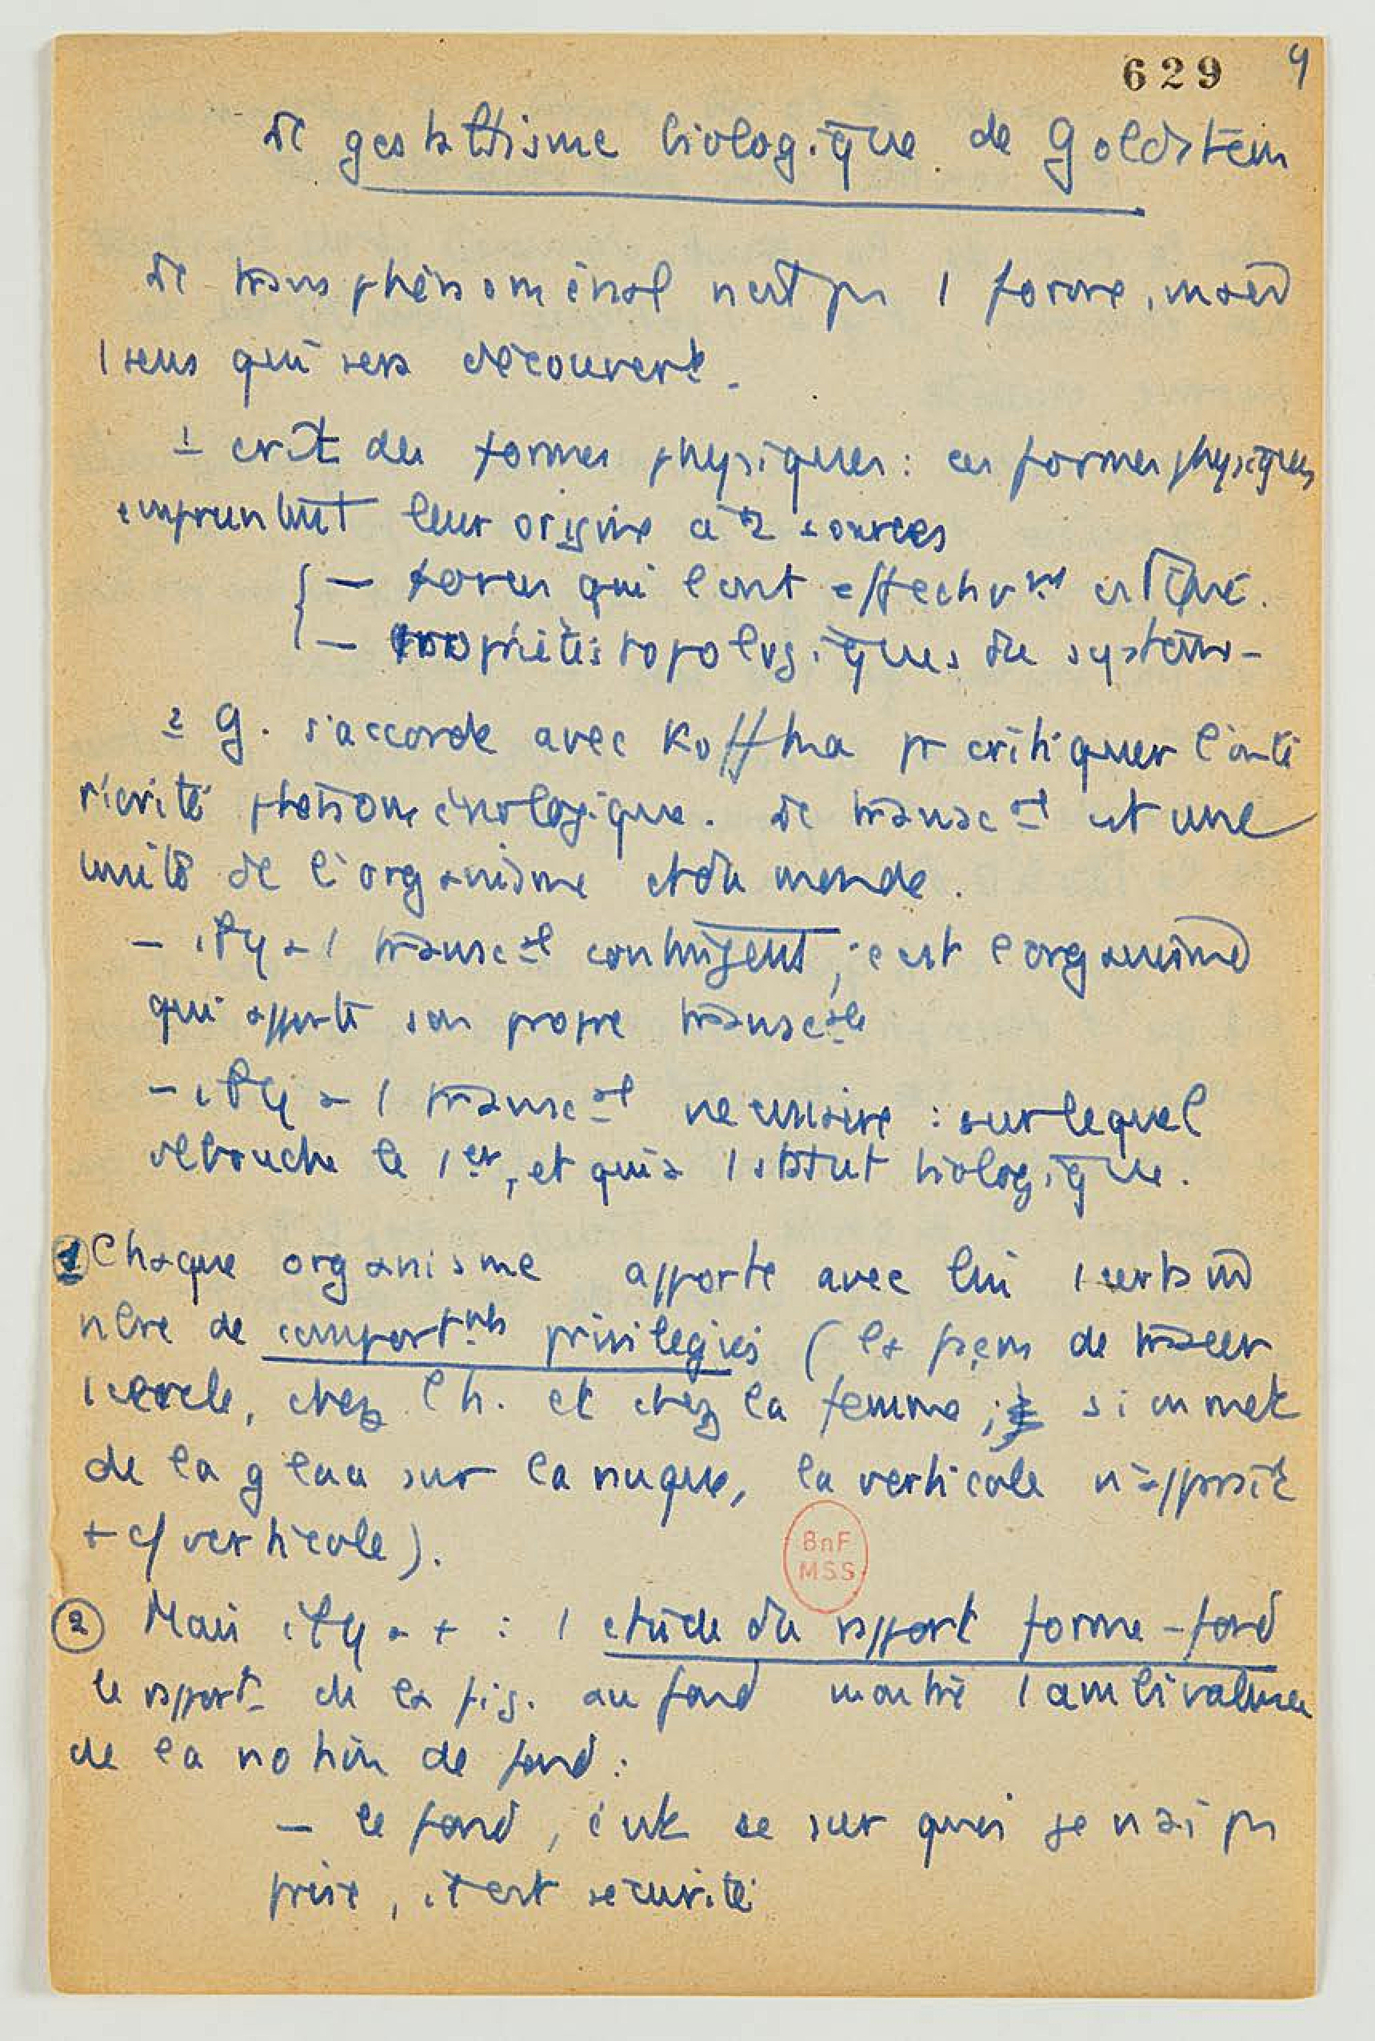 629 4
Le gestaltisme biologique de Goldstein
Le transphénoménal n'est pas 1 forme, mais
1 sens qui sera découvert.
1 crit des formes physiques : ces formes physiques
empruntent leur origine à 2 sources
{ — forces qui l'ont effectivmt
— propriétés topologiques du système -
2 G. s'accorde avec Koffka pr critiquer l'inté
riorité phénoménologique. Le transcal est une
unité de l'organisme et du monde.
- il y a 1 transcal contingent ; c'est l'organisme
qui apporte son propre transcal
- il y a 1 transcal nécessaire : sur lequel
débouche le 1er, et qui a 1 statut biologique.
1 Chaque organisme apporte avec lui 1 certain
nbre de comportmts privilégiés ( la façon de tracer
1 cercle, chez l'h. et chez la femme ; si on met
de la glace sur la nuque, la verticale n'apparaît
+ c/ verticale ).
2 Mais il y a + : 1 étude du rapport forme - fond
le rapport de la fig. au fond montre l'ambivalence
de la notion de fond :
— le fond, c'est ce sur quoi je n'ai pas
prise, il est sécurité
BnF
MSS